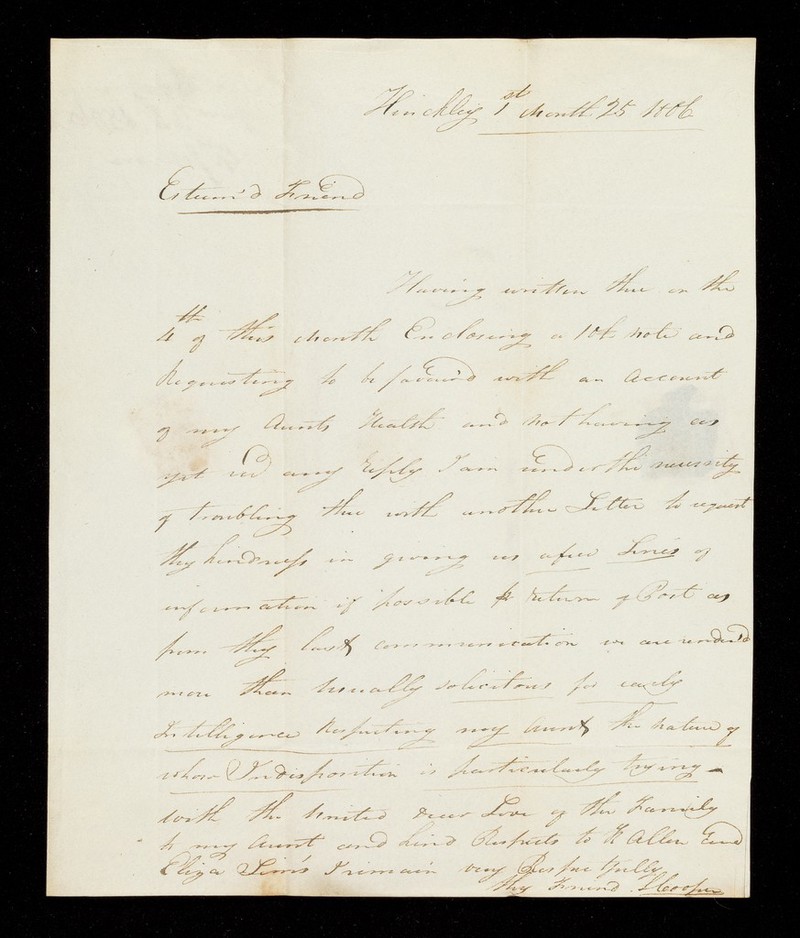 Hinckley 1st Month 25 1806
Esteem'd Friend
Having written thee on the
4th of this Month Enclosing a 10£ note and
Requesting to be favour'd with an account
of my Aunts Health and not having as
yet rec'd any reply I am under the necessity
of troubling thee with another Letter to request
thy kindness in giving us a few Lines of
information if possible return of Post as
from thy last communication we are render'd
more than usually solicitous for early
Intelligence Respecting my Aunt the nature of
whose Indisposition is particularly trying —
with the united dear Love of the Family
to my Aunt and kind Respects to K Allen and
Eliza Sims I remain very Respectfully
thy Friend Cooper